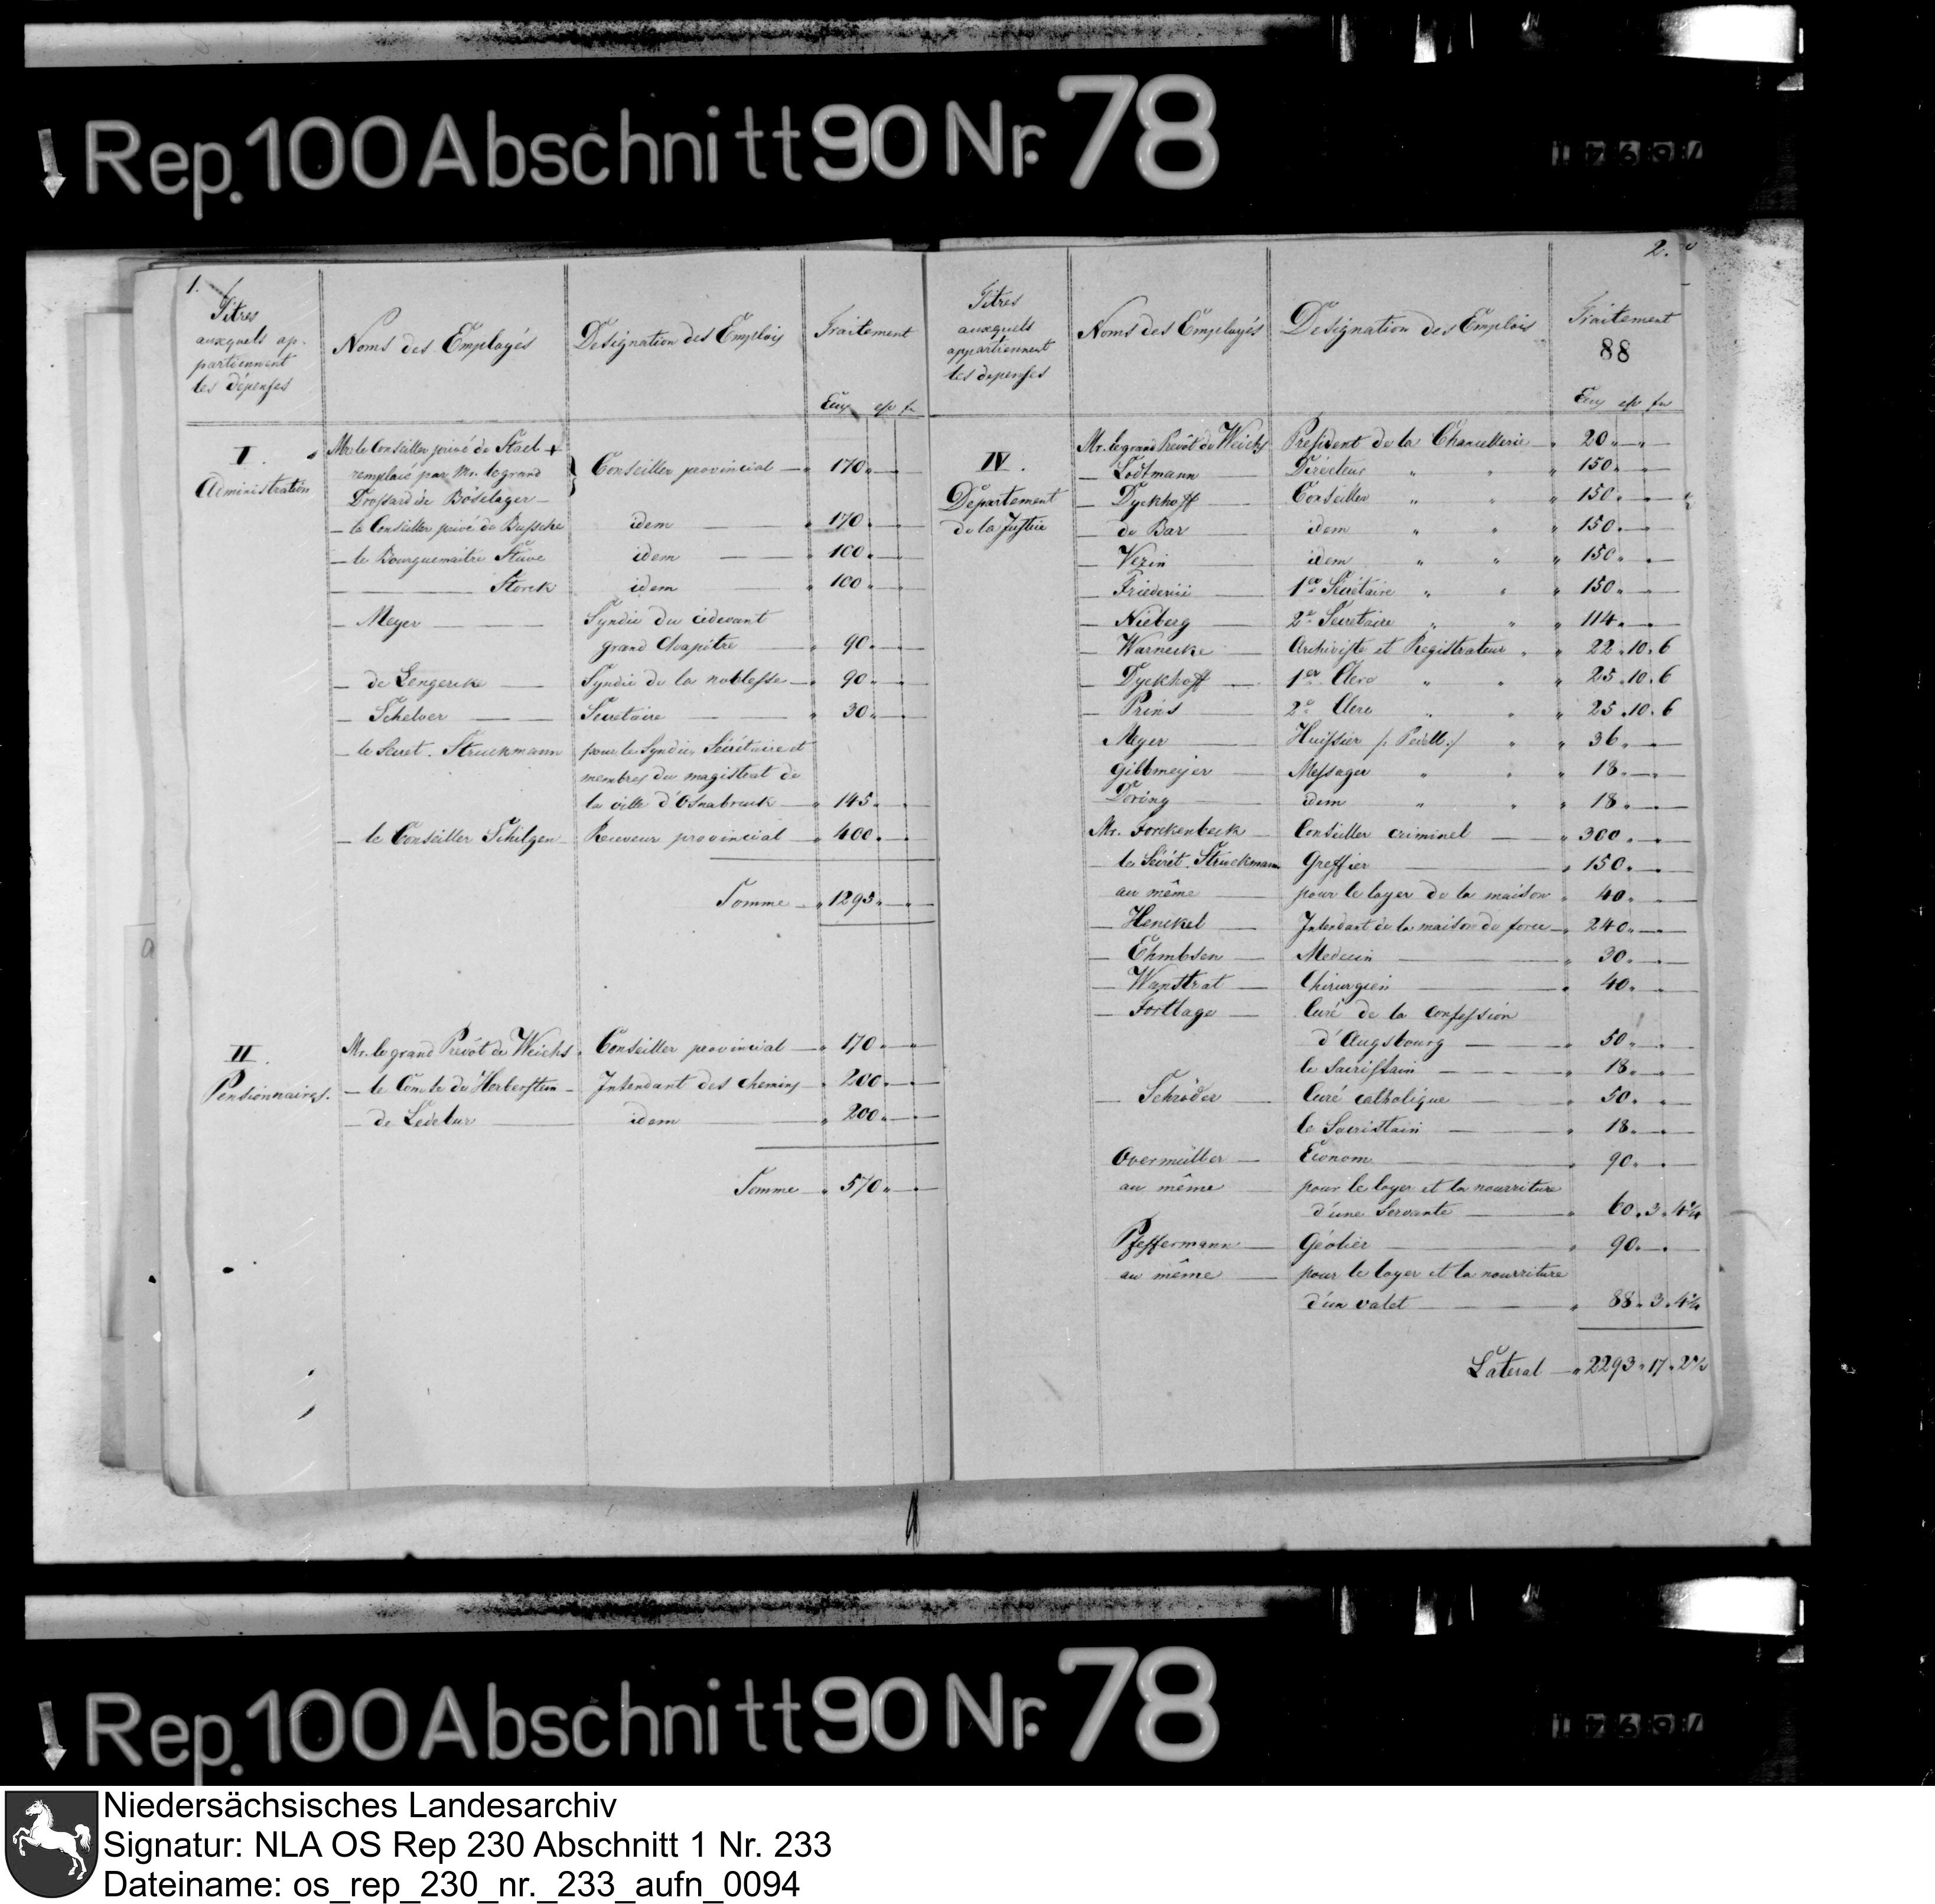 Rep. 100 Abschnitt 90 Nr. 78
1.
Titres
auxquels ap-
partiennent
les dépenses
Noms des Employés
Designation des Emplois
Traitement
I.
Administration
Mr. le Conseiller privé de Stael +
remplacé par Mr. le grand
Drossard de Böselager — } Conseiller provincial — " 170 " —
— le Conseiller privé de Bussche idem — " 170 " —
— le Bourguemaitre Stüve idem — " 100 " —
— — Storck idem — " 100 " —
— Meyer — Syndic du cidevant
grand Chapitre — " 90 " —
— de Lengerke — Syndic de la noblesse — " 90 " —
— Schelver — Secretaire — " 30 " —
— le Secret. Struckmann pour le Syndic, Sécrétaire et
membres du magistrat de
la ville d'Osnabruck — " 145 " —
— le Conseiller Schilgen — Receveur provincial — " 400 " —
Somme — " 1295 " —
II.
Pensionnaires.
Mr. le grand Prévôt de Weichs. Conseiller provincial — " 170 " —
— le Comte de Herberstein — Intendant des chemins — " 200 " —
— de Ledebur — idem — " 200 " —
Somme — " 570 " —
2.
Titres
auxquels
appartiennent
les depenses
Noms des Employés
Designation des Emplois
Traitement
88
IV.
Departement
de la Justice
Mr. le grand Prevôt de Weichs President de la Chancellerie " 20 " —
— Lodtmann — Directeur " " " 150 " —
— Dyckhoff — Conseiller " " " 150 " —
— de Bar — idem " " " 150 " —
— Vezin — idem " " " 150 " —
— Friederici — 1er Secrétaire " " " 150 " —
— Nieberg — 2e Secretaire " " " 114 " —
— Warnecke — Archiviste et Registrateur " " 22 " 10 " 6
— Dyckhoff — 1er Clerc " " " 25 " 10 " 6
— Prins — 2e Clerc " " " 25 " 10 " 6
Meyer — Huissier /: Pedell :/ " " 36 " —
Gibbmeyer — Messager " " " 18 " —
Doring — idem " " " 18 " —
Mr. Forckenbeck — Conseiller criminel — " 300 " —
— le Sécrét. Struckmann Greffier — " 150 " —
au même — pour le loyer de la maison " 40 " —
— Henckel — Intendant de la maison de force — " 240 " —
— Ehmbsen — Medecin — " 30 " —
— Wanstrat — Chirurgien — " 40 " —
— Fortlage — Curé de la confession
d'Augsbourg — " 50 " —
le Sacristain — " 18 " —
— Schröder — Curé catholique — " 50 " —
le Sacristain — " 18 " —
Overmüller — Econom — " 90 " —
au même — pour le loyer et la nourriture
d'une Servante — " 60 " 3 " 4¼
Pfeffermann — Géolier — " 90 " —
au même — pour le loyer et la nourriture
d'un valet — " 88 " 3 " 4¼
Lateral — " 2293 " 17 " 2½
Rep. 100 Abschnitt 90 Nr. 78
Niedersächsisches Landesarchiv
Signatur: NLA OS Rep 230 Abschnitt 1 Nr. 233
Dateiname: os_rep_230_nr._233_aufn_0094